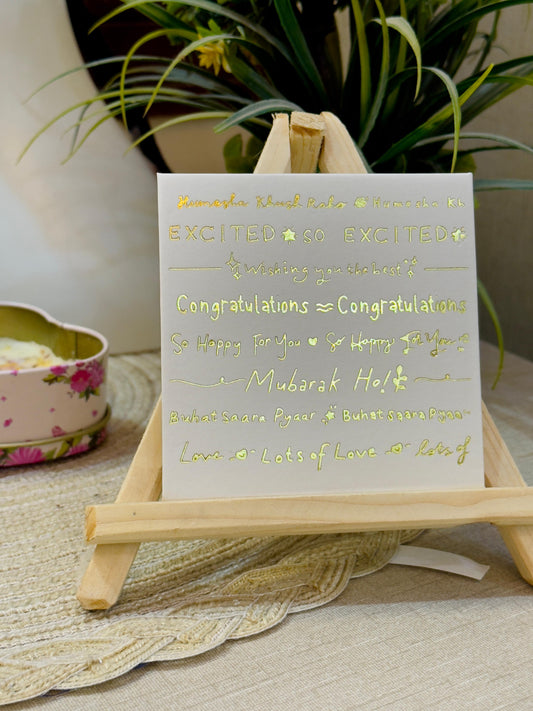 Humesha Khush Raho Humesha Kh
EXCITED SO EXCITED
Wishing you the best
Congratulations ≈ Congratulations
So Happy For You So Happy For You
Mubarak Ho!
Buhat Saara Pyaar Buhat Saara Pyaa
Love Lots of Love lots of